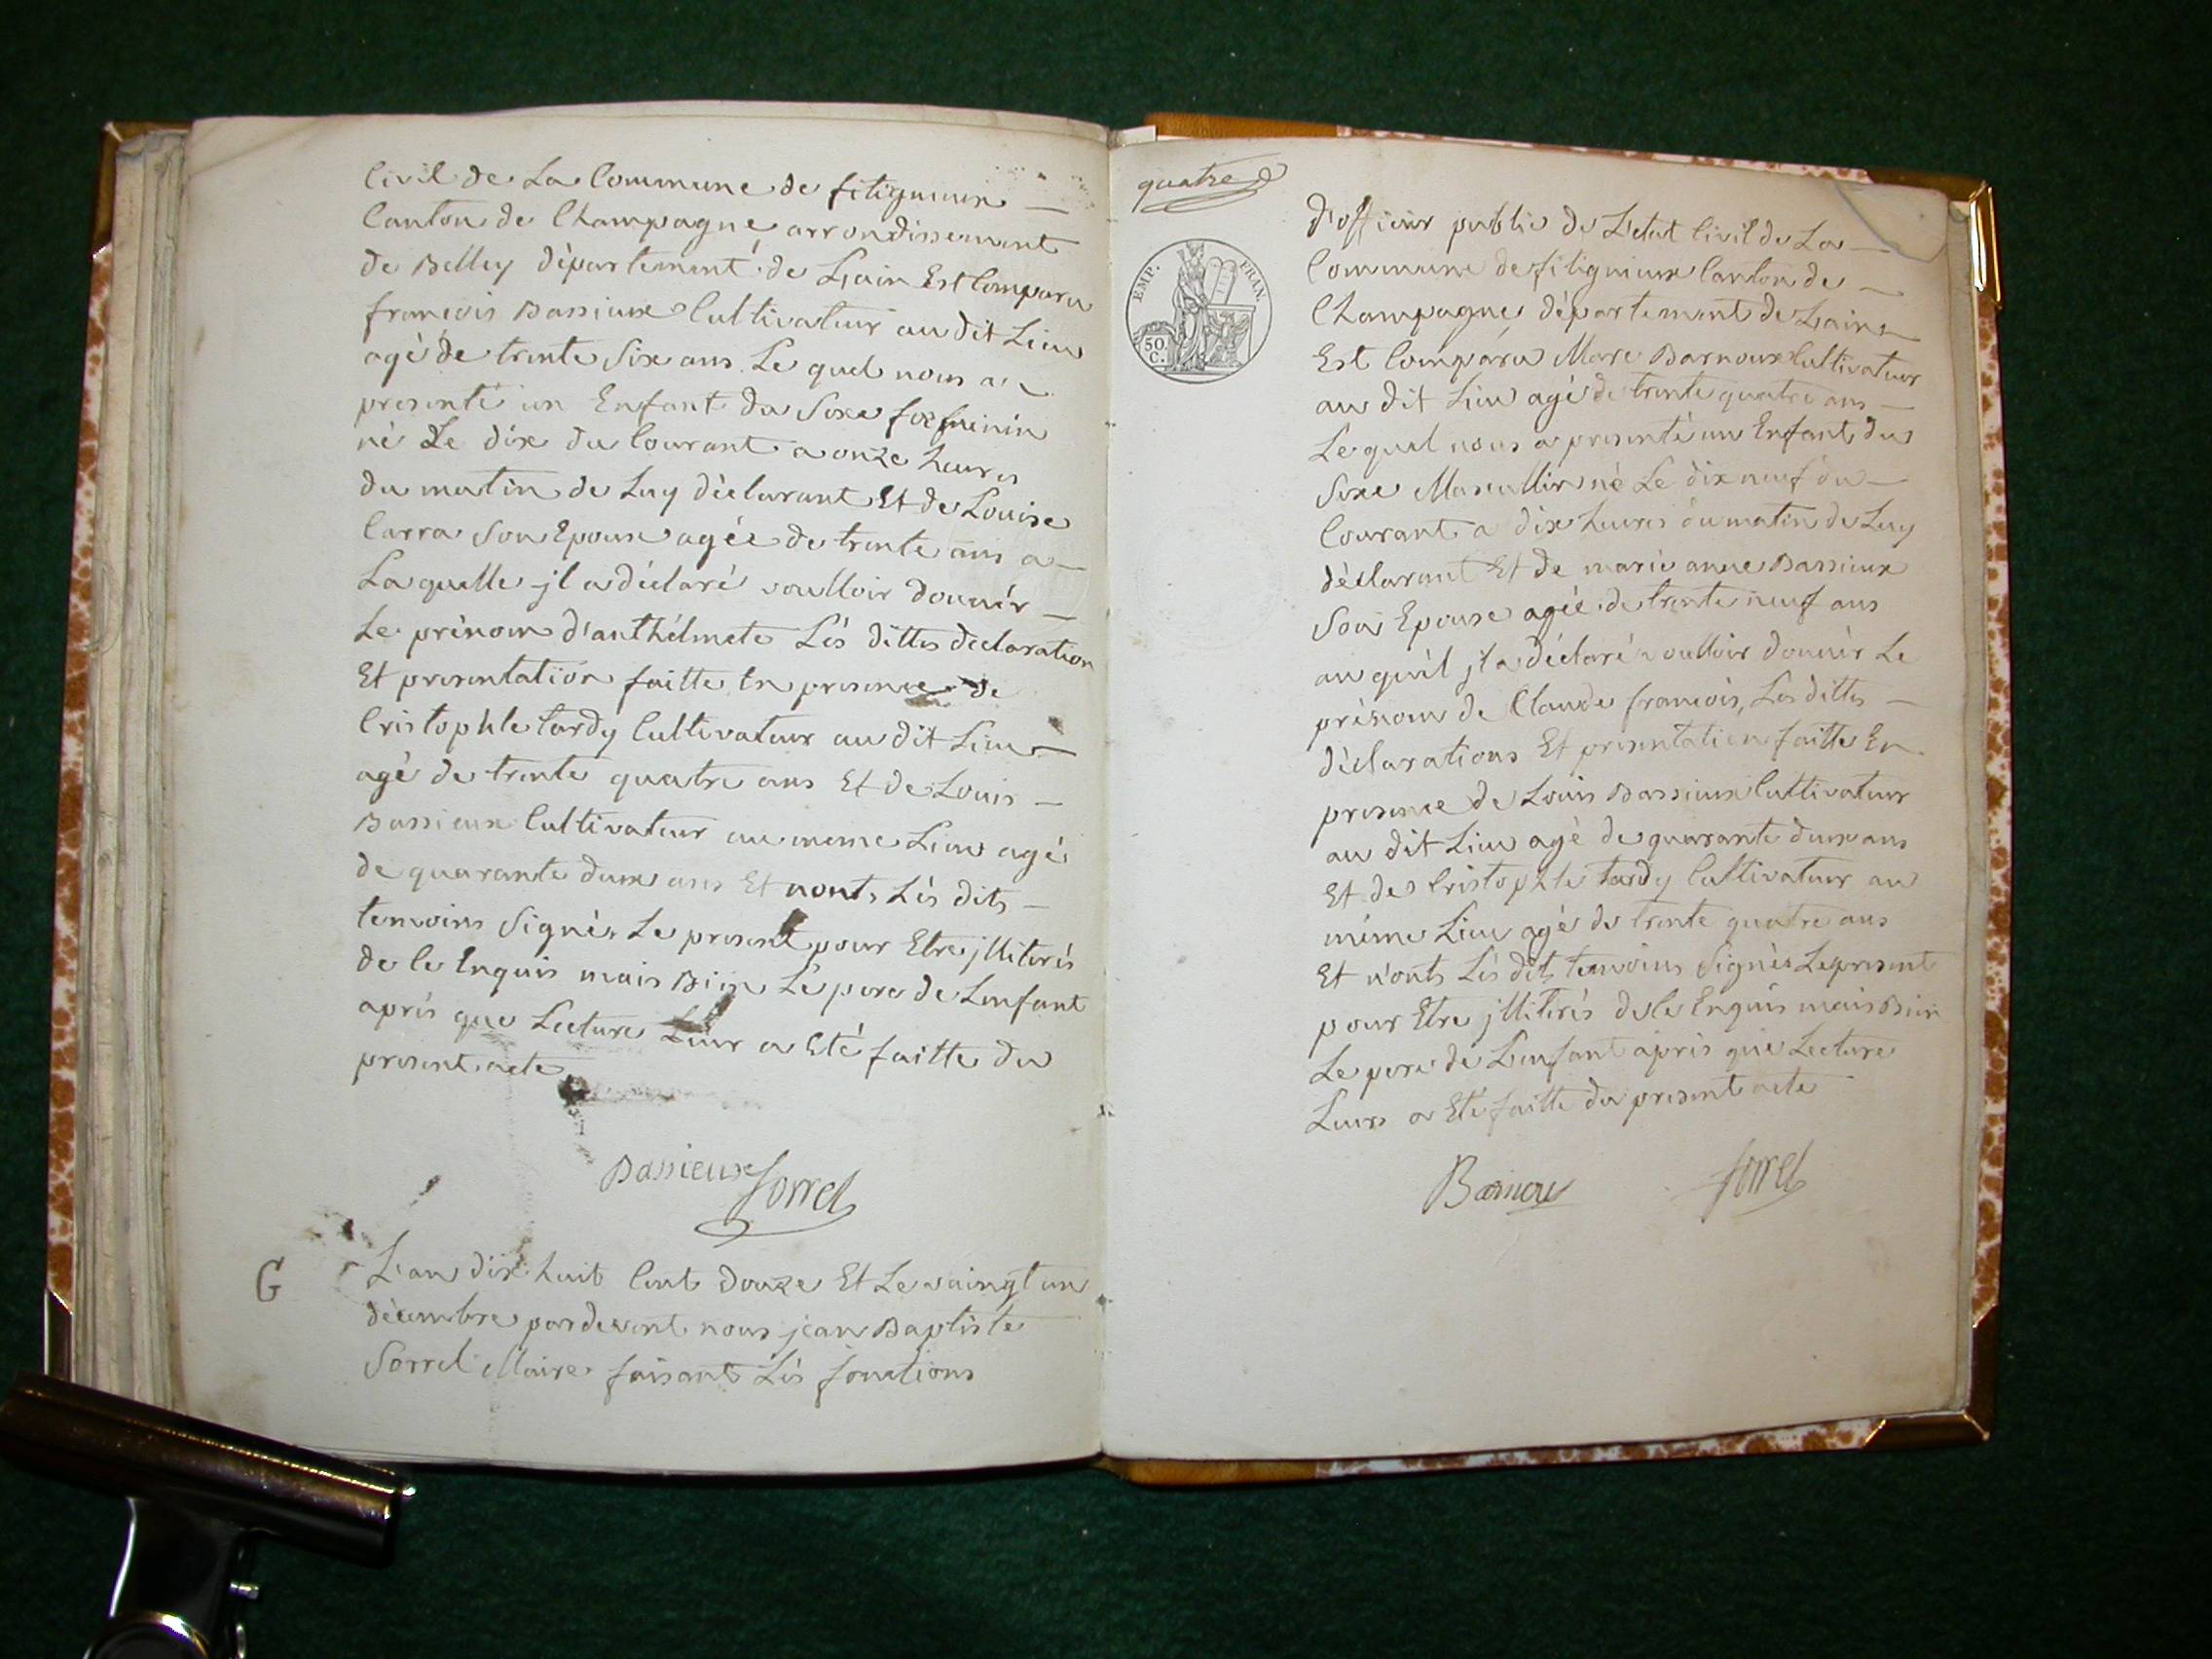 Civil de La Commune de fitignieux —
Canton de Champagne, arrondissement
de Belley département de Lain Est Comparu
francois Bassieux Cultivateur au dit Lieu
agé de trente Six ans Le quel nous a
presenté un Enfant du Sexe feminin
né Le dix du Courant a onze heures
du matin de Luy déclarant Et de Louise
Carra Son Epouse agée de trente ans a —
La quelle jl a déclaré voulloir donnér —
Le prénom d'anthélmete Lés dittes declaration
Et presentation faitte En presence de
Cristophle tardy Cultivateur au dit Lieu —
agé de trente quatre ans Et de Louis —
Bassieux Cultivateur au meme Lieu agé
de quarante deux ans Et nonts Lés dits —
temoins Signés Le present pour Etre jllitérés
de le Enquis mais Bien Le pere de Lenfant
aprés que Lecture Leur a Eté faitte du
present acte
Bassieux Sorrel
G
L'an dix huit Cent douze Et Le vaingt un
décembre pardevent nous jean Baptiste
Sorrel Maire faisant Lés fonctions
quatre
EMP. FRAN.
50
C.
d'officier public de L'etat Civil de La —
Commune de fitignieux Canton de —
Champagne département de Lain —
Est Comparu Marc Barnoux Cultivateur
au dit Lieu agé de trente quatre ans —
Le quel nous a presenté un Enfant du
Sexe Masculin né Le dix neuf du —
Courant a dix heures du matin de Luy
déclarant Et de marie anne Bassieux
Son Epouse agée de trente neuf ans
au quél jl a déclaré voulloir donnér Le
prénom de Claude francois, Lés dittes —
déclarations Et presentation faitte En
presence de Louis Bassieux Cultivateur
au dit Lieu agé de quarante deux ans
Et de Cristophle tardy Cultivateur au
méme Lieu agé de trente quatre ans
Et n'onts Lés dits temoins Signés Le present
pour Etre jllitérés de le Enquis mais Bien
Le pere de Lenfant aprés que Lecture
Leurs a Eté faitte du present acte
Barnoux Sorrel